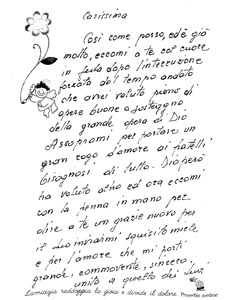 Carissima
Così come posso, ed è già
molto, eccomi a te col cuore
in festa dopo l'interruzione
forzata del tempo andato
che avrei voluto pieno di
opere buone a sostegno
della grande opera di Dio
Aspromi per portare un
gran rogo d'amore ai fratelli
bisognosi di tutto. Dio però
ha voluto altro ed ora eccomi
con la penna in mano per
dire a te un grazie nuovo per
il tuo inviarmi squisito miele
e per l'amore che mi porti
grande, commovente, sincero,
unito a questo dei tuoi
L'amicizia raddoppia la gioia e divide il dolore. Proverbio svedese